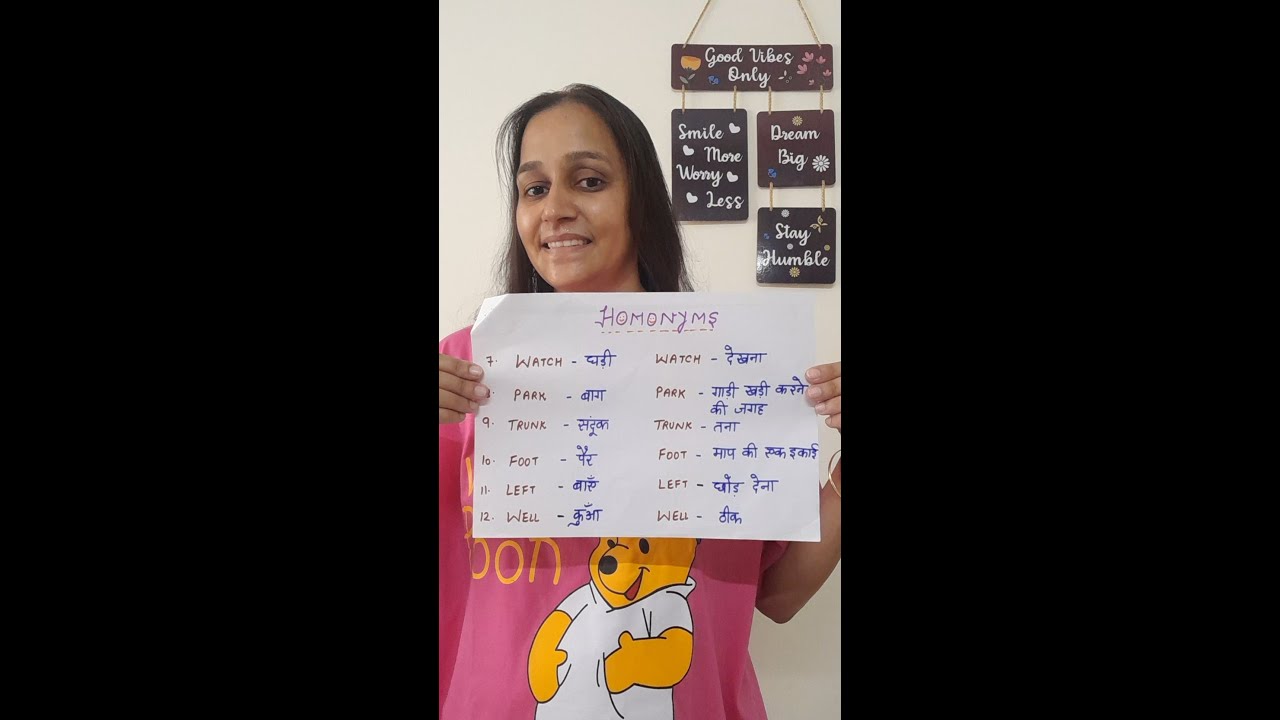 Good Vibes
Only
Smile
More
Worry
Less
Dream
Big
Stay
Humble
HOMONYMS
7. WATCH - घड़ी WATCH - देखना
PARK - बाग PARK - गाडी खडी करने
की जगह
9. TRUNK - संदूक TRUNK - तना
10. FOOT - पैर FOOT - माप की एक इकाई
11. LEFT - बाएँ LEFT - छोड़ देना
12. WELL - कुँआ WELL - ठीक
oon